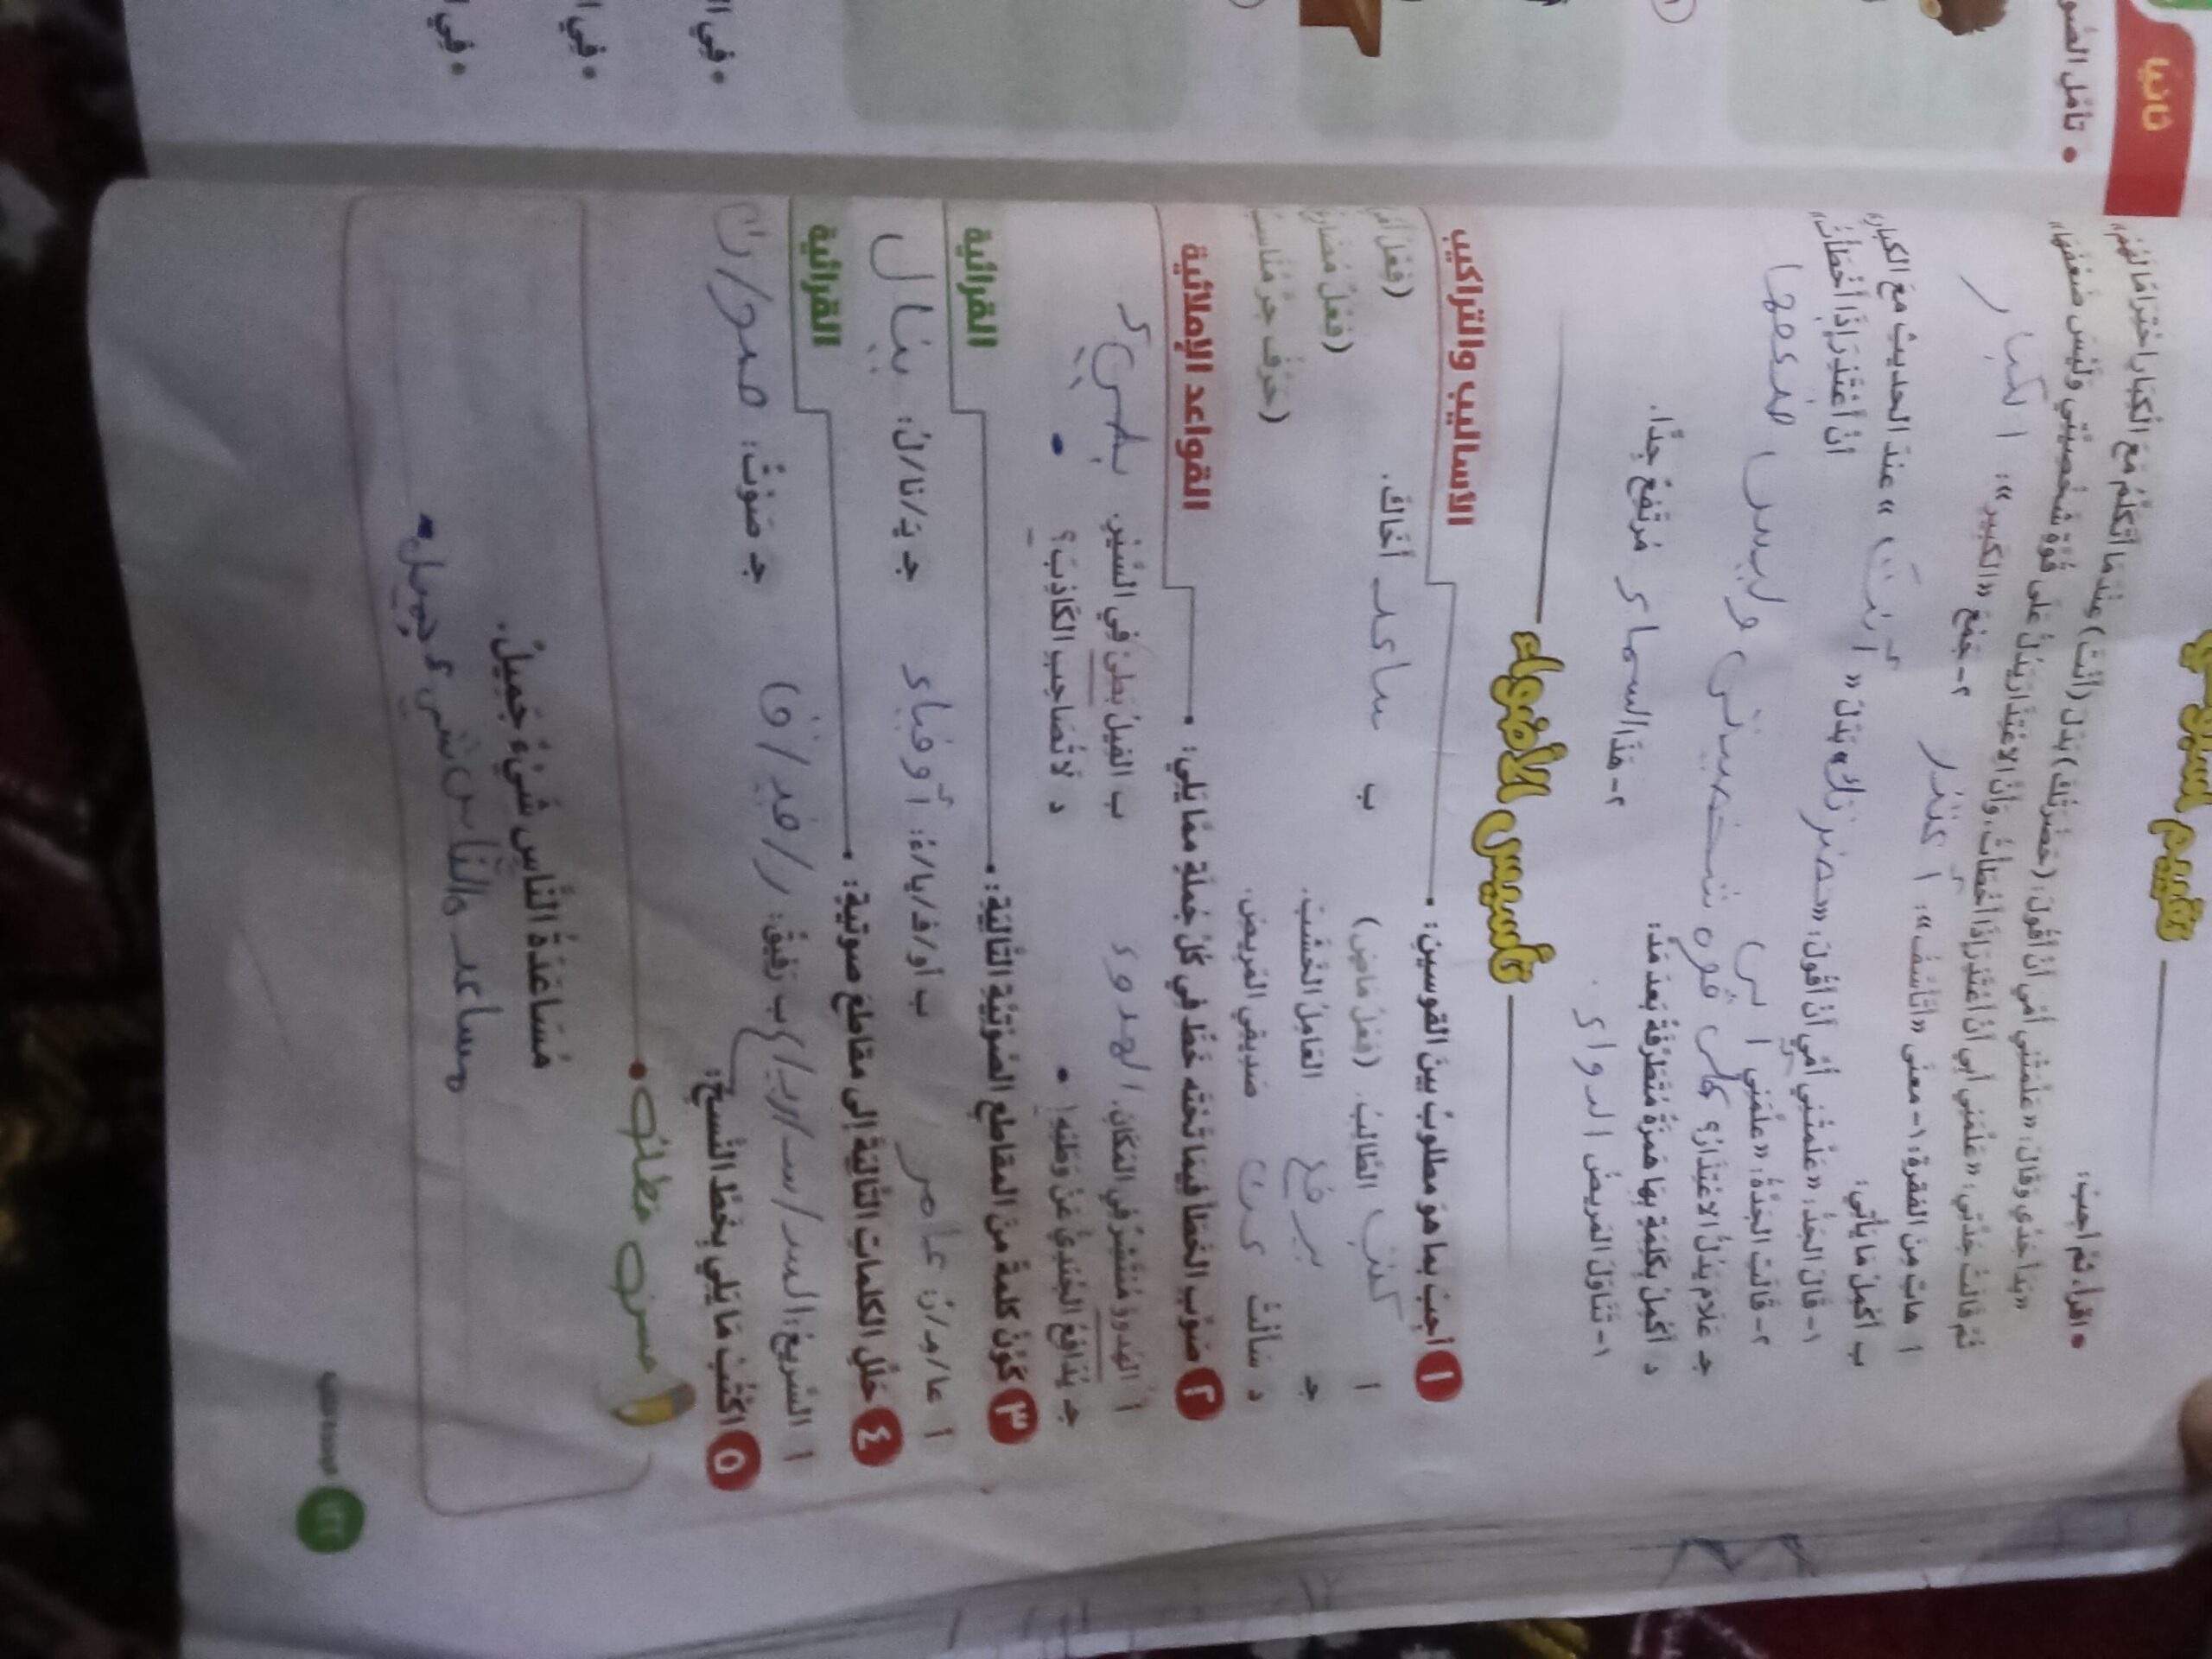 تقييم أسبوعي
• اقرأ، ثم أجب:
«بدأ جدي وقال: «علمتني أمي أن أقول: (حضرتك) بدل (أنت) عندما أتكلم مع الكبار احترامًا لهم»
ثم قالت جدتي: «علمني أبي أن أعتذر إذا أخطأت، وأن الاعتذار يدل على قوة شخصيتي وليس ضعفها»
أ هات من الفقرة: ١- معنى «أتأسف»: أعتذر ٢- جمع «الكبير»: الكبار
ب أكمل ما يأتي:
١- قال الجد: «علمتني أمي أن أقول: «حضرتك» بدل «أنت» عند الحديث مع الكبار»
٢- قالت الجدة: «علمني أبي أن أعتذر إذا أخطأت»
جـ علام يدل الاعتذار؟ على قوه شخصيتي وليس ضعفها
د أكمل بكلمة بها همزة متطرفة بعد مد:
١- تناول المريض الدواء . ٢- هذا السماء مرتفع جدًا.
تأسيس الأضواء
١ أجب بما هو مطلوب بين القوسين: الأساليب والتراكيب
أ كتب الطالب. (فعل ماض) ب ساعد أخاك. (فعل أمر)
جـ يرفع العامل الخشب. (فعل مضارع)
د سألت عن صديقي المريض. (حرف جر مناسب)
٢ صوب الخطأ فيما تحته خط في كل جملة مما يلي: القواعد الإملائية
أ الهدوؤ منتشر في المكان. الهدوء ب الفيل بطئ في السير. بطيء
جـ يدافع الجندي عن وطنه! . د لا تصاحب الكاذب؟ .
٣ كون كلمة من المقاطع الصوتية التالية: القرائية
أ عا/مـ/ر: عامر ب أو/فـ/يا/ء: أوفياء جـ يـ/نا/ل: ينال
٤ حلل الكلمات التالية إلى مقاطع صوتية: القرائية
أ السريع: ب رفيق: ر/فيـ/ق جـ صوت: صو/ت
٥ اكتب ما يلي بخط النسخ:
حسن خطك
مساعدة الناس شيء جميل.
مساعد والناس شيء جميل.
١٢٢
ثانيا
• تأمل الصو
• في ا
• في ا
• في ا